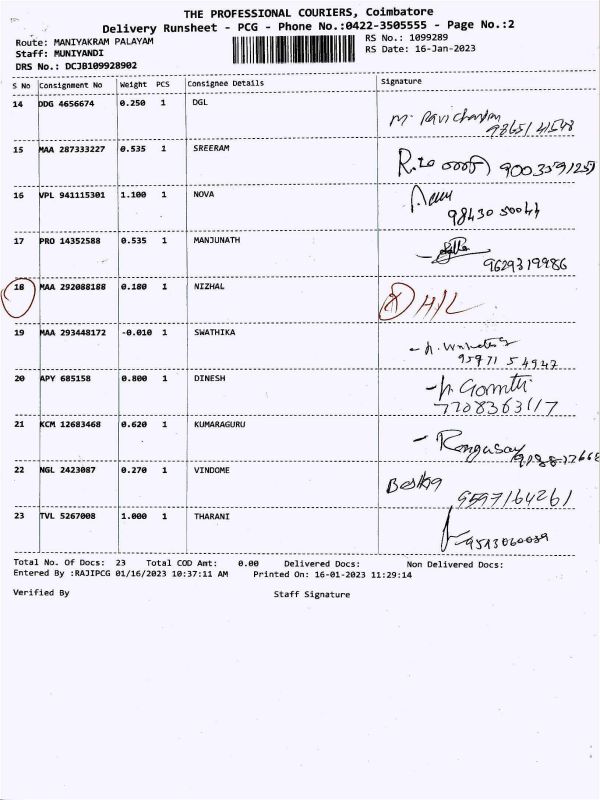 THE PROFESSIONAL COURIERS, Coimbatore
Delivery Runsheet - PCG - Phone No.:0422-3505555 - Page No.:2
Route: MANIYAKRAM PALAYAM
Staff: MUNIYANDI
DRS No.: DCJB109928902
RS No.: 1099289
RS Date: 16-Jan-2023
S No Consignment No Weight PCS Consignee Details Signature
14 DDG 4656674 0.250 1 DGL
M. Ravichandran
15 MAA 287333227 0.535 1 SREERAM
16 VPL 941115301 1.100 1 NOVA
98430 50044
17 PRO 14352588 0.535 1 MANJUNATH
9629319986
18 MAA 292088188 0.180 1 NIZHAL
H/L
19 MAA 293448172 -0.010 1 SWATHIKA
95971 54947
20 APY 685158 0.800 1 DINESH
7708363117
21 KCM 12683468 0.620 1 KUMARAGURU
- Rengasay
22 NGL 2423087 0.270 1 VINDOME
9597164261
23 TVL 5267008 1.000 1 THARANI
9513060089
Total No. Of Docs: 23 Total COD Amt: 0.00 Delivered Docs: Non Delivered Docs:
Entered By :RAJIPCG 01/16/2023 10:37:11 AM Printed On: 16-01-2023 11:29:14
Verified By Staff Signature